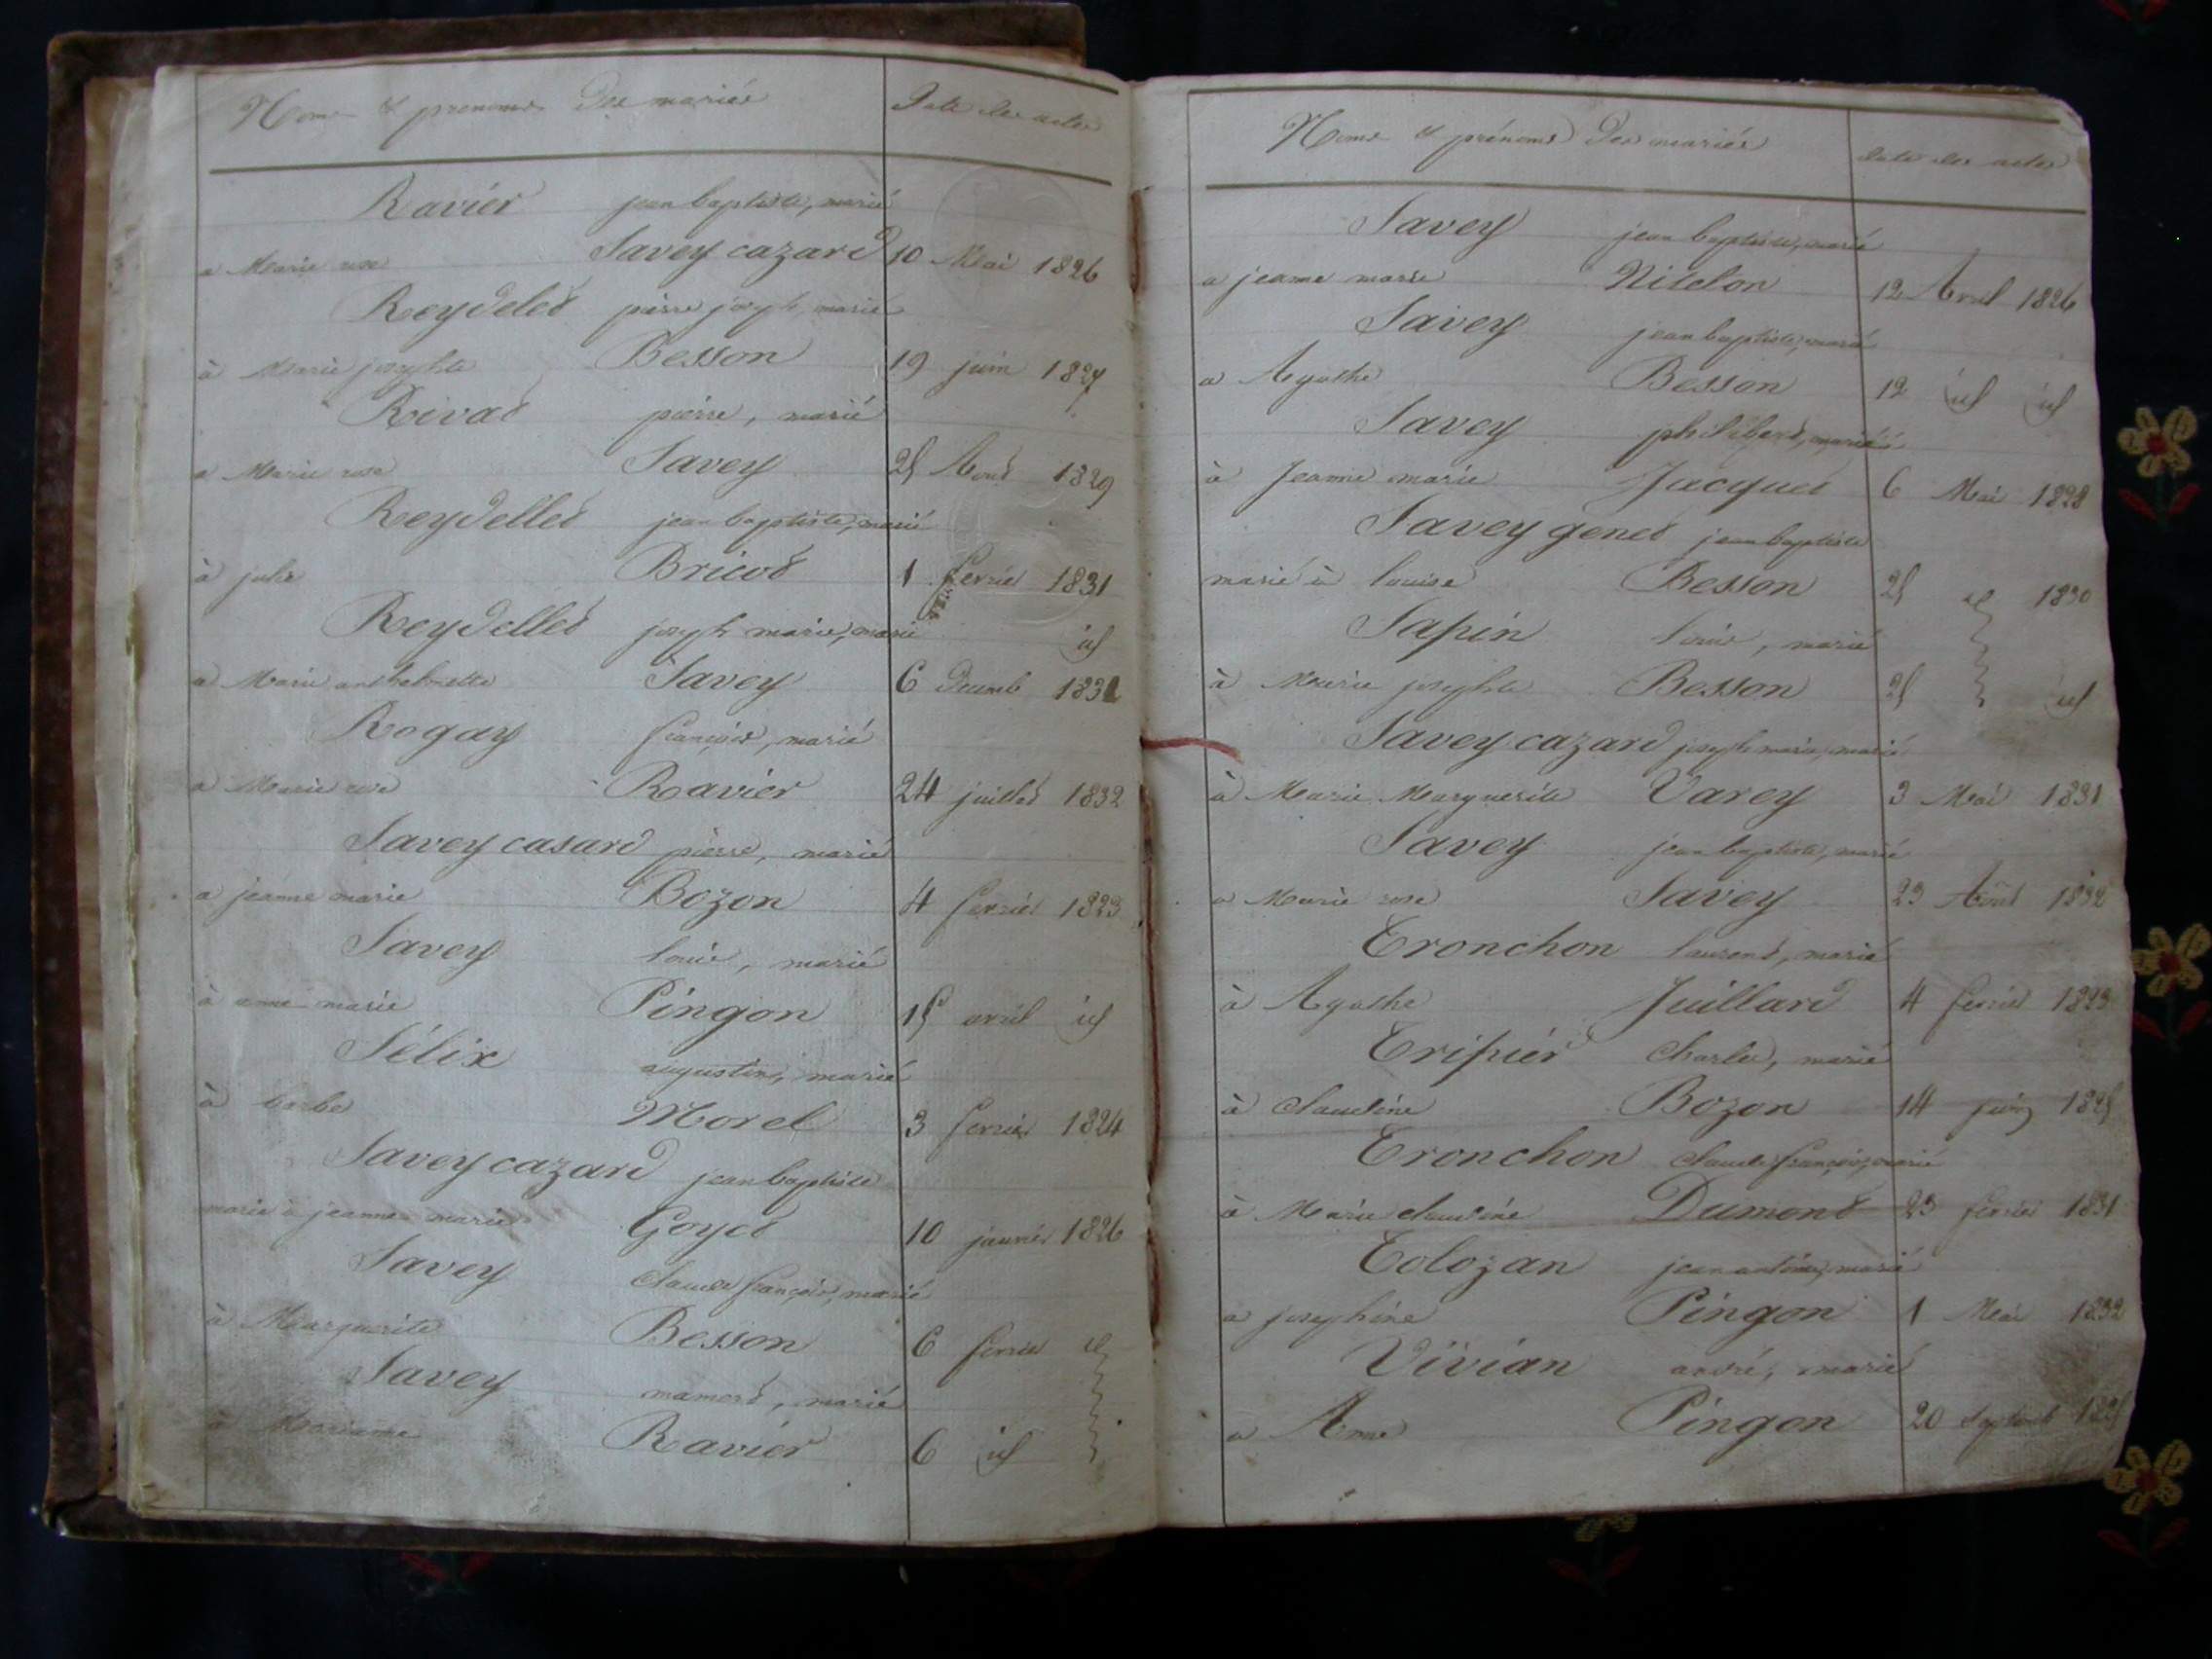 Noms & prénoms des mariés Date des actes
Ravier jean baptiste, marié
a Marie rose Savey cazard 10 Mai 1826
Reydelet pierre joseph, marié
à Marie josephte Besson 19 juin 1827
Rivat pierre, marié
a Marie rose Savey 25 Aout 1829
Reydellet jean baptiste, marié
à julie Bricod 1 fevrier 1831
Reydellet joseph marie, marié id
a Marie anthelmette Savey 6 Decemb 1831
Rogay françois, marié
a Marie rose Ravier 24 juillet 1832
Savey casard pierre, marié
a jeanne marie Bozon 4 fevrier 1823
Savey louis, marié
à anne marie Pingon 15 avril id
Sélix augustin, marié
à barbe Morel 3 fevrier 1824
Savey cazard jean baptiste
marié à jeanne marie Goyet 10 janvier 1826
Savey claude françois, marié
à Marguerite Besson 6 fevrier id
Savey mamert, marié
à Marianne Ravier 6 id
Noms & prénoms des mariés date des actes
Savey jean baptiste, marié
a jeanne marie Nitelon 12 Avril 1826
Savey jean baptiste, marié
a Agathe Besson 12 id id
Savey philibert, marié
à Jeanne marie Jacquet 6 Mai 1828
Savey genet jean baptiste
marié à louise Besson 25 1830
Sapin louis, marié
à Marie josephte Besson 25 id
Savey cazard joseph marie, marié
à Marie Marguerite Varey 3 Mai 1831
Savey jean baptiste, marié
a Marie rose Savey 23 Août 1832
Tronchon laurent, marié
à Agathe Juillard 4 fevrier 1823
Tripier Charles, marié
à Claudine Bozon 14 juin 1825
Tronchon Claude françois, marié
à Marie claudine Dumont 23 fevrier 1831
Tolozan jean antoine, marié
a josephine Pingon 1 Mai 1832
Vivian andré, marié
a Anne Pingon 20 Septemb